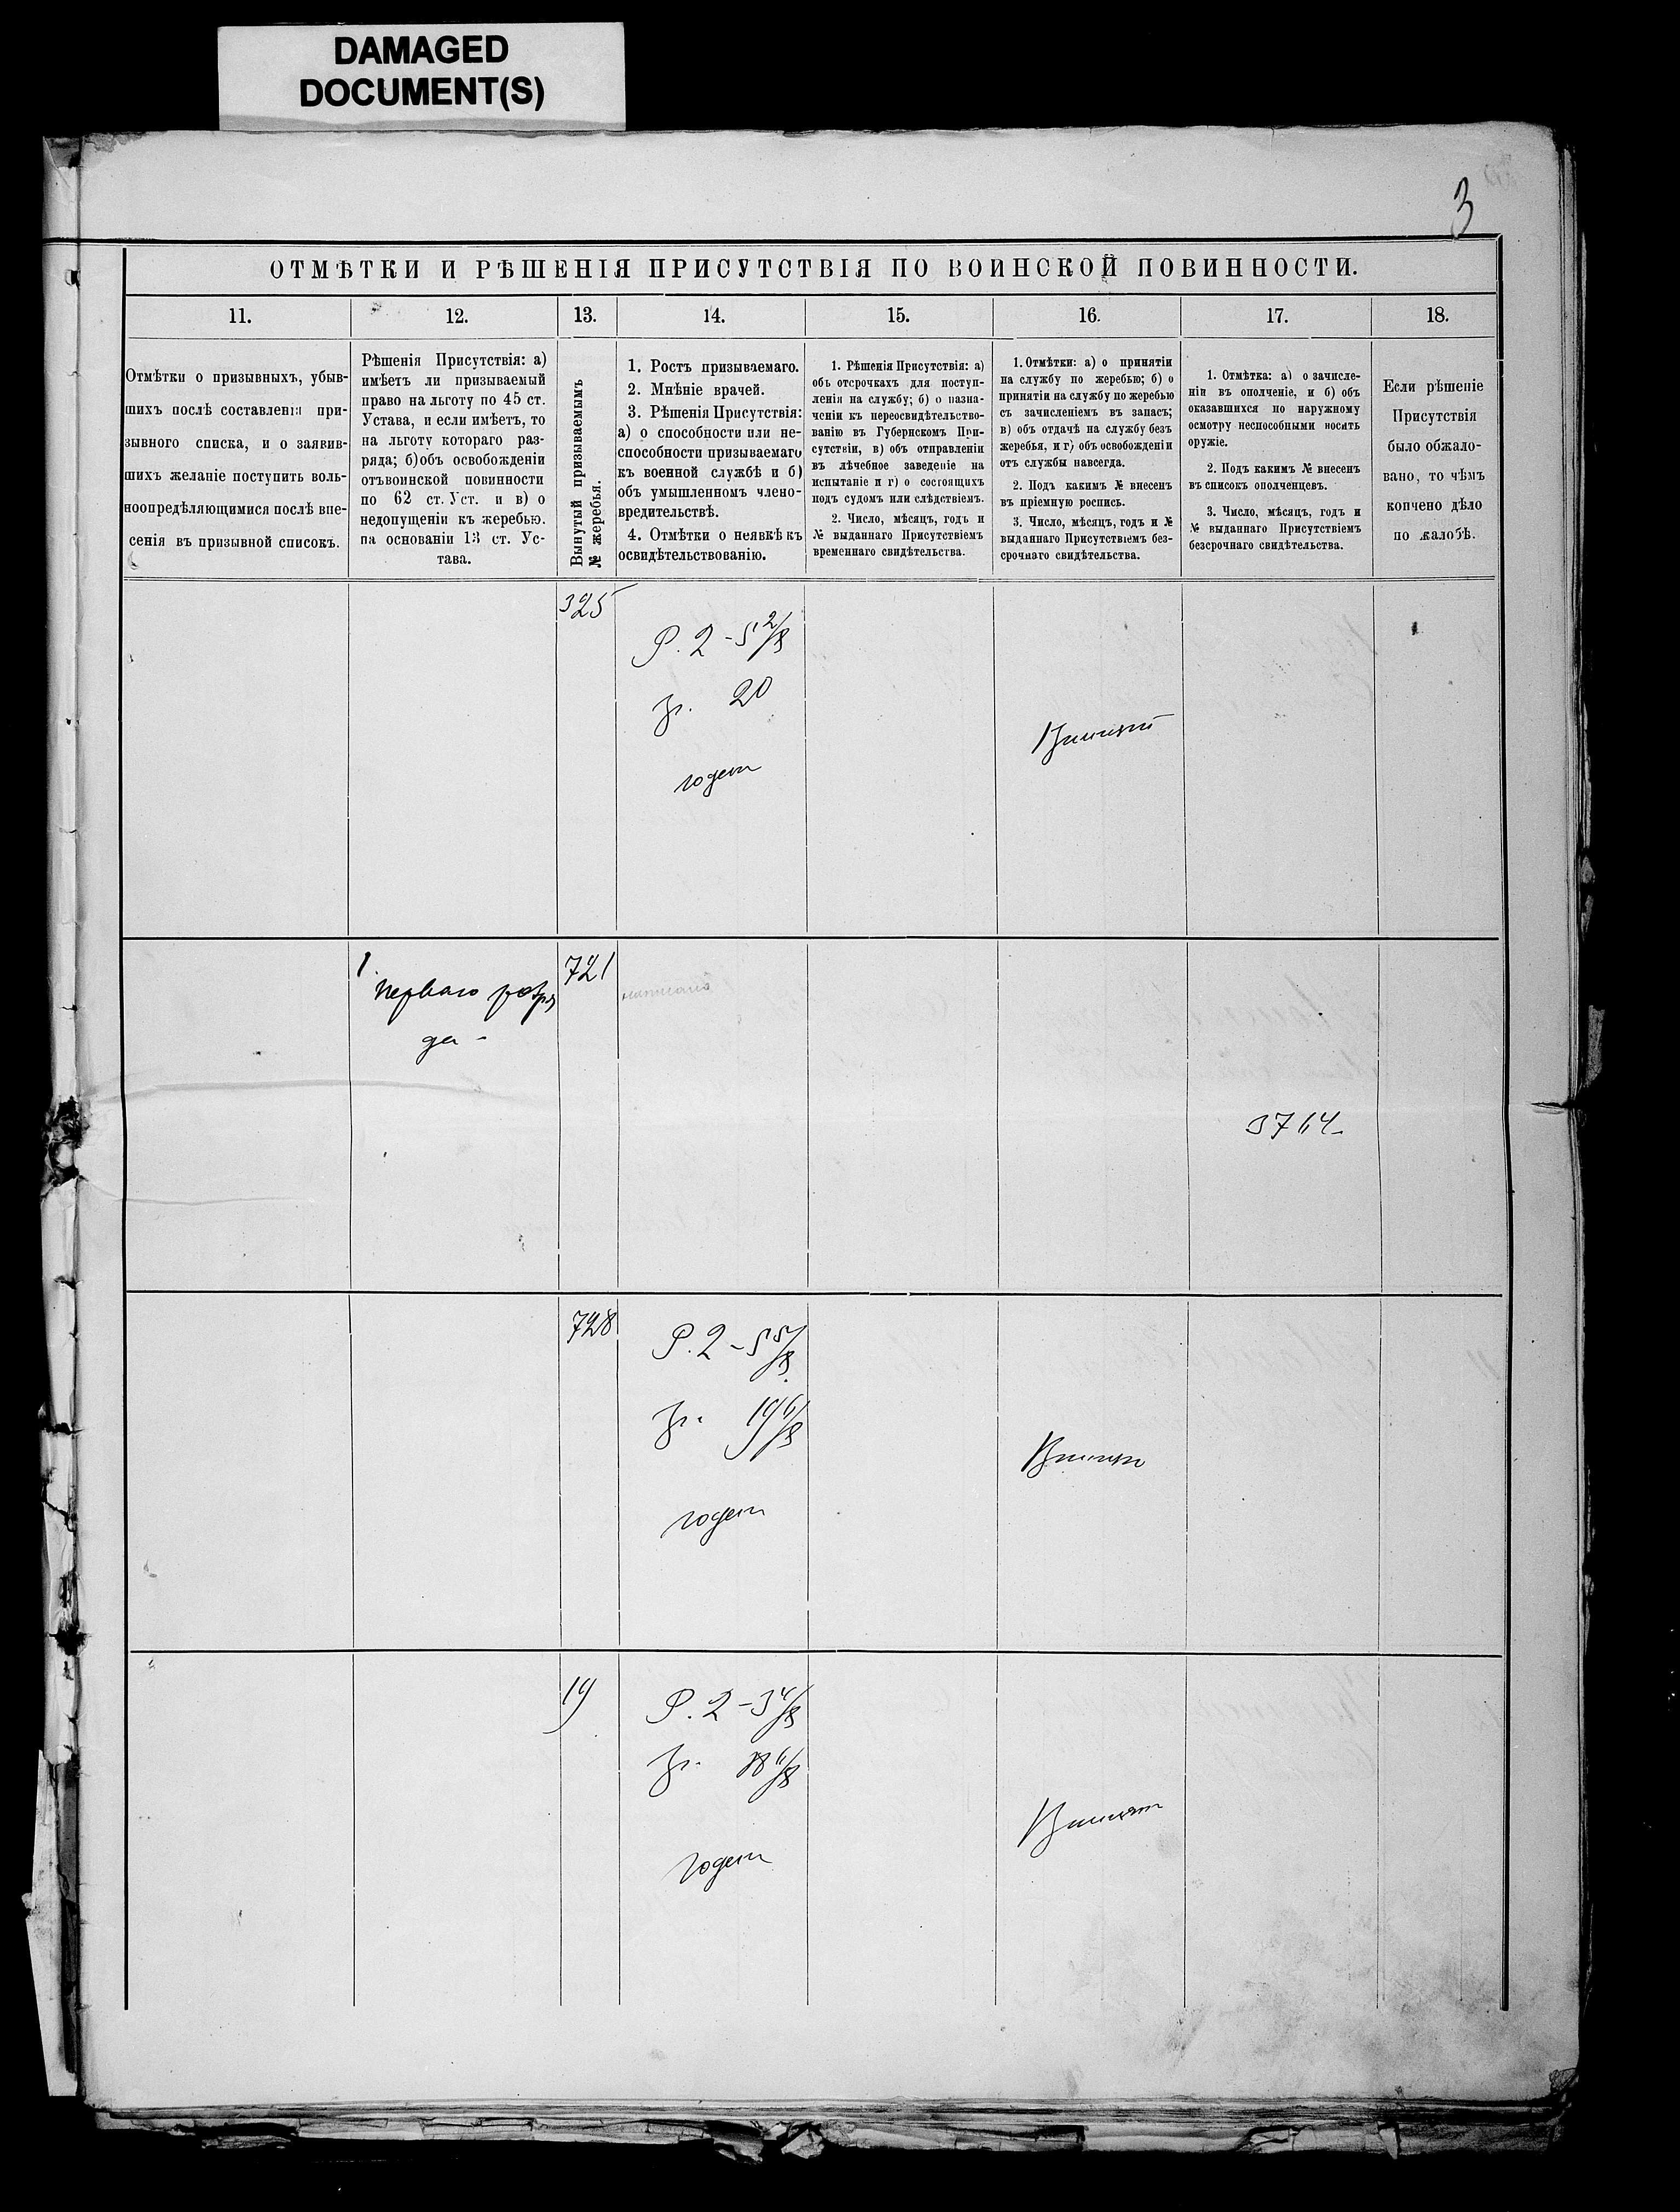 DAMAGED
DOCUMENT(S)
3
ОТМѢТКИ И РѢШЕНІЯ ПРИСУТСТВІЯ ПО ВОИНСКОЙ ПОВИННОСТИ.
11.
12.
13.
14.
15.
16.
17.
18.
Отмѣтки о призывныхъ, убыв-
шихъ послѣ составленія при-
зывного списка, и о заявив-
шихъ желаніе поступить воль-
ноопредѣляющимися послѣ вне-
сенія въ призывной списокъ.
Рѣшенія Присутствія: а)
имѣетъ ли призываемый
право на льготу по 45 ст.
Устава, и если имѣетъ, то
на льготу котораго раз-
ряда; б) объ освобожденіи
отъ воинской повинности
по 62 ст. Уст. и в) о
недопущеніи къ жеребью.
на основаніи 13 ст. Ус-
тава.
Вынутый призываемымъ
№ жеребья.
1. Ростъ призываемаго.
2. Мнѣніе врачей.
3. Рѣшенія Присутствія:
а) о способности или не-
способности призываемаго
къ военной службѣ и б)
объ умышленномъ члено-
вредительствѣ.
4. Отмѣтки о неявкѣ къ
освидѣтельствованію.
1. Рѣшенія Присутствія: а)
объ отсрочкахъ для поступ-
ленія на службу; б) о назна-
ченіи къ переосвидѣтельство-
ванію въ Губернскомъ При-
сутствіи, в) объ отправленіи
въ лѣчебное заведеніе на
испытаніе и г) о состоящихъ
подъ судомъ или слѣдствіемъ.
2. Число, мѣсяцъ, годъ и
№ выданнаго Присутствіемъ
временнаго свидѣтельства.
1. Отмѣтки: а) о принятіи
на службу по жеребью; б) о
принятіи на службу по жеребью
съ зачисленіемъ въ запасъ;
в) объ отдачѣ на службу безъ
жеребья, и г) объ освобожденіи
отъ службы навсегда.
2. Подъ какимъ № внесенъ
въ пріемную роспись.
3. Число, мѣсяцъ, годъ и №
выданнаго Присутствіемъ без-
срочнаго свидѣтельства.
1. Отмѣтка: а) о зачисле-
ніи въ ополченіе, и б) объ
оказавшихся по наружному
осмотру неспособными носить
оружіе.
2. Подъ какимъ № внесенъ
въ списокъ ополченцевъ.
3. Число, мѣсяцъ, годъ и
№ выданнаго Присутствіемъ
безсрочнаго свидѣтельства.
Если рѣшеніе
Присутствія
было обжало-
вано, то чѣмъ
кончено дѣло
по жалобѣ.
325
Р. 2 - 5 2/8
Гр. 20
годенъ
Принятъ
1.
перваго разря
да -
721
3714
728
Р. 2 - 5 5/8
Гр. 19 6/8
годенъ
Принятъ
19
Р. 2 - 3 4/8
Гр. 18 6/8
годенъ
Принятъ